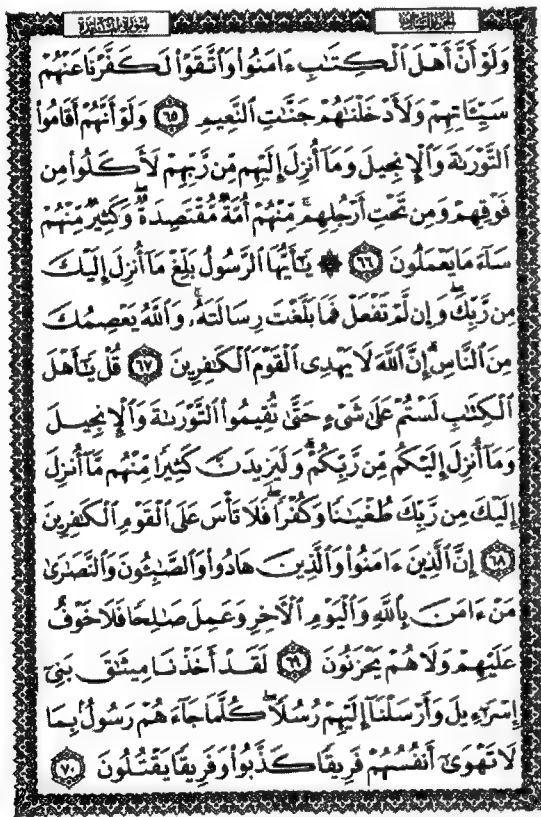 سورة المائدة الجزء السادس
وَلَوْ أَنَّ أَهْلَ ٱلْكِتَٰبِ ءَامَنُوا۟ وَٱتَّقَوْا۟ لَكَفَّرْنَا عَنْهُمْ
سَيِّـَٔاتِهِمْ وَلَأَدْخَلْنَٰهُمْ جَنَّٰتِ ٱلنَّعِيمِ ٦٥ وَلَوْ أَنَّهُمْ أَقَامُوا۟
ٱلتَّوْرَىٰةَ وَٱلْإِنجِيلَ وَمَآ أُنزِلَ إِلَيْهِم مِّن رَّبِّهِمْ لَأَكَلُوا۟ مِن
فَوْقِهِمْ وَمِن تَحْتِ أَرْجُلِهِم ۚ مِّنْهُمْ أُمَّةٌ مُّقْتَصِدَةٌ ۖ وَكَثِيرٌ مِّنْهُمْ
سَآءَ مَا يَعْمَلُونَ ٦٦ ۞ يَٰٓأَيُّهَا ٱلرَّسُولُ بَلِّغْ مَآ أُنزِلَ إِلَيْكَ
مِن رَّبِّكَ ۖ وَإِن لَّمْ تَفْعَلْ فَمَا بَلَّغْتَ رِسَالَتَهُۥ ۚ وَٱللَّهُ يَعْصِمُكَ
مِنَ ٱلنَّاسِ ۗ إِنَّ ٱللَّهَ لَا يَهْدِى ٱلْقَوْمَ ٱلْكَٰفِرِينَ ٦٧ قُلْ يَٰٓأَهْلَ
ٱلْكِتَٰبِ لَسْتُمْ عَلَىٰ شَىْءٍ حَتَّىٰ تُقِيمُوا۟ ٱلتَّوْرَىٰةَ وَٱلْإِنجِيلَ
وَمَآ أُنزِلَ إِلَيْكُم مِّن رَّبِّكُمْ ۗ وَلَيَزِيدَنَّ كَثِيرًا مِّنْهُم مَّآ أُنزِلَ
إِلَيْكَ مِن رَّبِّكَ طُغْيَٰنًا وَكُفْرًا ۖ فَلَا تَأْسَ عَلَى ٱلْقَوْمِ ٱلْكَٰفِرِينَ
٦٨ إِنَّ ٱلَّذِينَ ءَامَنُوا۟ وَٱلَّذِينَ هَادُوا۟ وَٱلصَّٰبِـُٔونَ وَٱلنَّصَٰرَىٰ
مَنْ ءَامَنَ بِٱللَّهِ وَٱلْيَوْمِ ٱلْـَٔاخِرِ وَعَمِلَ صَٰلِحًا فَلَا خَوْفٌ
عَلَيْهِمْ وَلَا هُمْ يَحْزَنُونَ ٦٩ لَقَدْ أَخَذْنَا مِيثَٰقَ بَنِىٓ
إِسْرَٰٓءِيلَ وَأَرْسَلْنَآ إِلَيْهِمْ رُسُلًا ۖ كُلَّمَا جَآءَهُمْ رَسُولٌۢ بِمَا
لَا تَهْوَىٰٓ أَنفُسُهُمْ فَرِيقًا كَذَّبُوا۟ وَفَرِيقًا يَقْتُلُونَ ٧٠